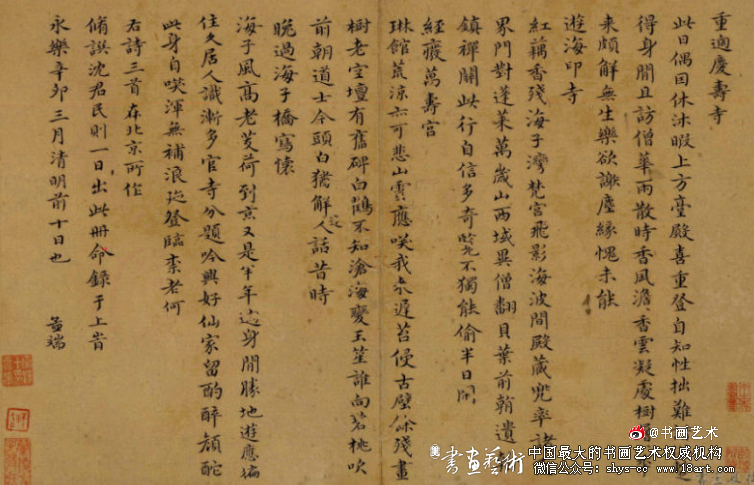 重過慶壽寺
此日偶因休沐暇上方臺殿喜重登自知性拙難
得身閒且訪僧華雨散時香風澹香雲凝處樹
來頗解無生樂欲謝塵緣愧未能
遊海印寺
紅藕香殘海子灣梵宮飛影海波間殿藏兜率諸
界門對蓬萊萬歲山西域異僧翻貝葉前朝遺
鎮禪關此行自信多奇覽不獨能偷半日閒
經廢萬壽宮
琳館荒涼六可悲山雲應咲我來遲苔侵古壁餘殘畫
樹老空壇有舊碑白鶴不知滄海變玉笙誰向碧桃吹
前朝道士今頭白猶解人話昔時
晚過海子橋寫懷
海子風高老芰荷到京又是半年過身閒勝地遊應徧
住久居人識漸多官寺分題吟興好仙家留酌醉顏酡
此身自咲渾無補浪跡登臨柰老何
右詩三首在北京所作
脩譔沈君民則一日出此冊命錄于上旹
永樂辛卯三月清明前十日也
孟端
書画艺术
@书画艺术
中国最大的书画艺术权威机构
微信公众号：shys-cc www.18art.com